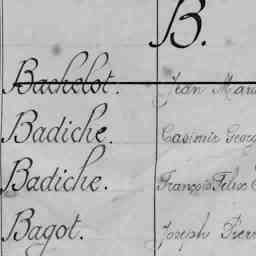 B.
Bachelot. Jean Mari
Badiche. Casimir Georg
Badiche. François Felix
Bagot. Joseph Pierr